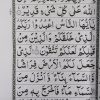 عَلٰى كُلِّ شَيْءٍ قَدِيْرٌ
يٰۤاَيُّهَا النَّاسُ اعْبُدُوْا رَبَّكُمُ
الَّذِيْ خَلَقَكُمْ وَالَّذِيْنَ مِنْ
قَبْلِكُمْ لَعَلَّكُمْ تَتَّقُوْنَ الَّذِيْ
جَعَلَ لَكُمُ الْاَرْضَ فِرَاشًا
وَّالسَّمَآءَ بِنَآءً وَّاَنْزَلَ مِنَ
السَّمَآءِ مَآءً فَاَخْرَجَ بِهٖ مِنَ